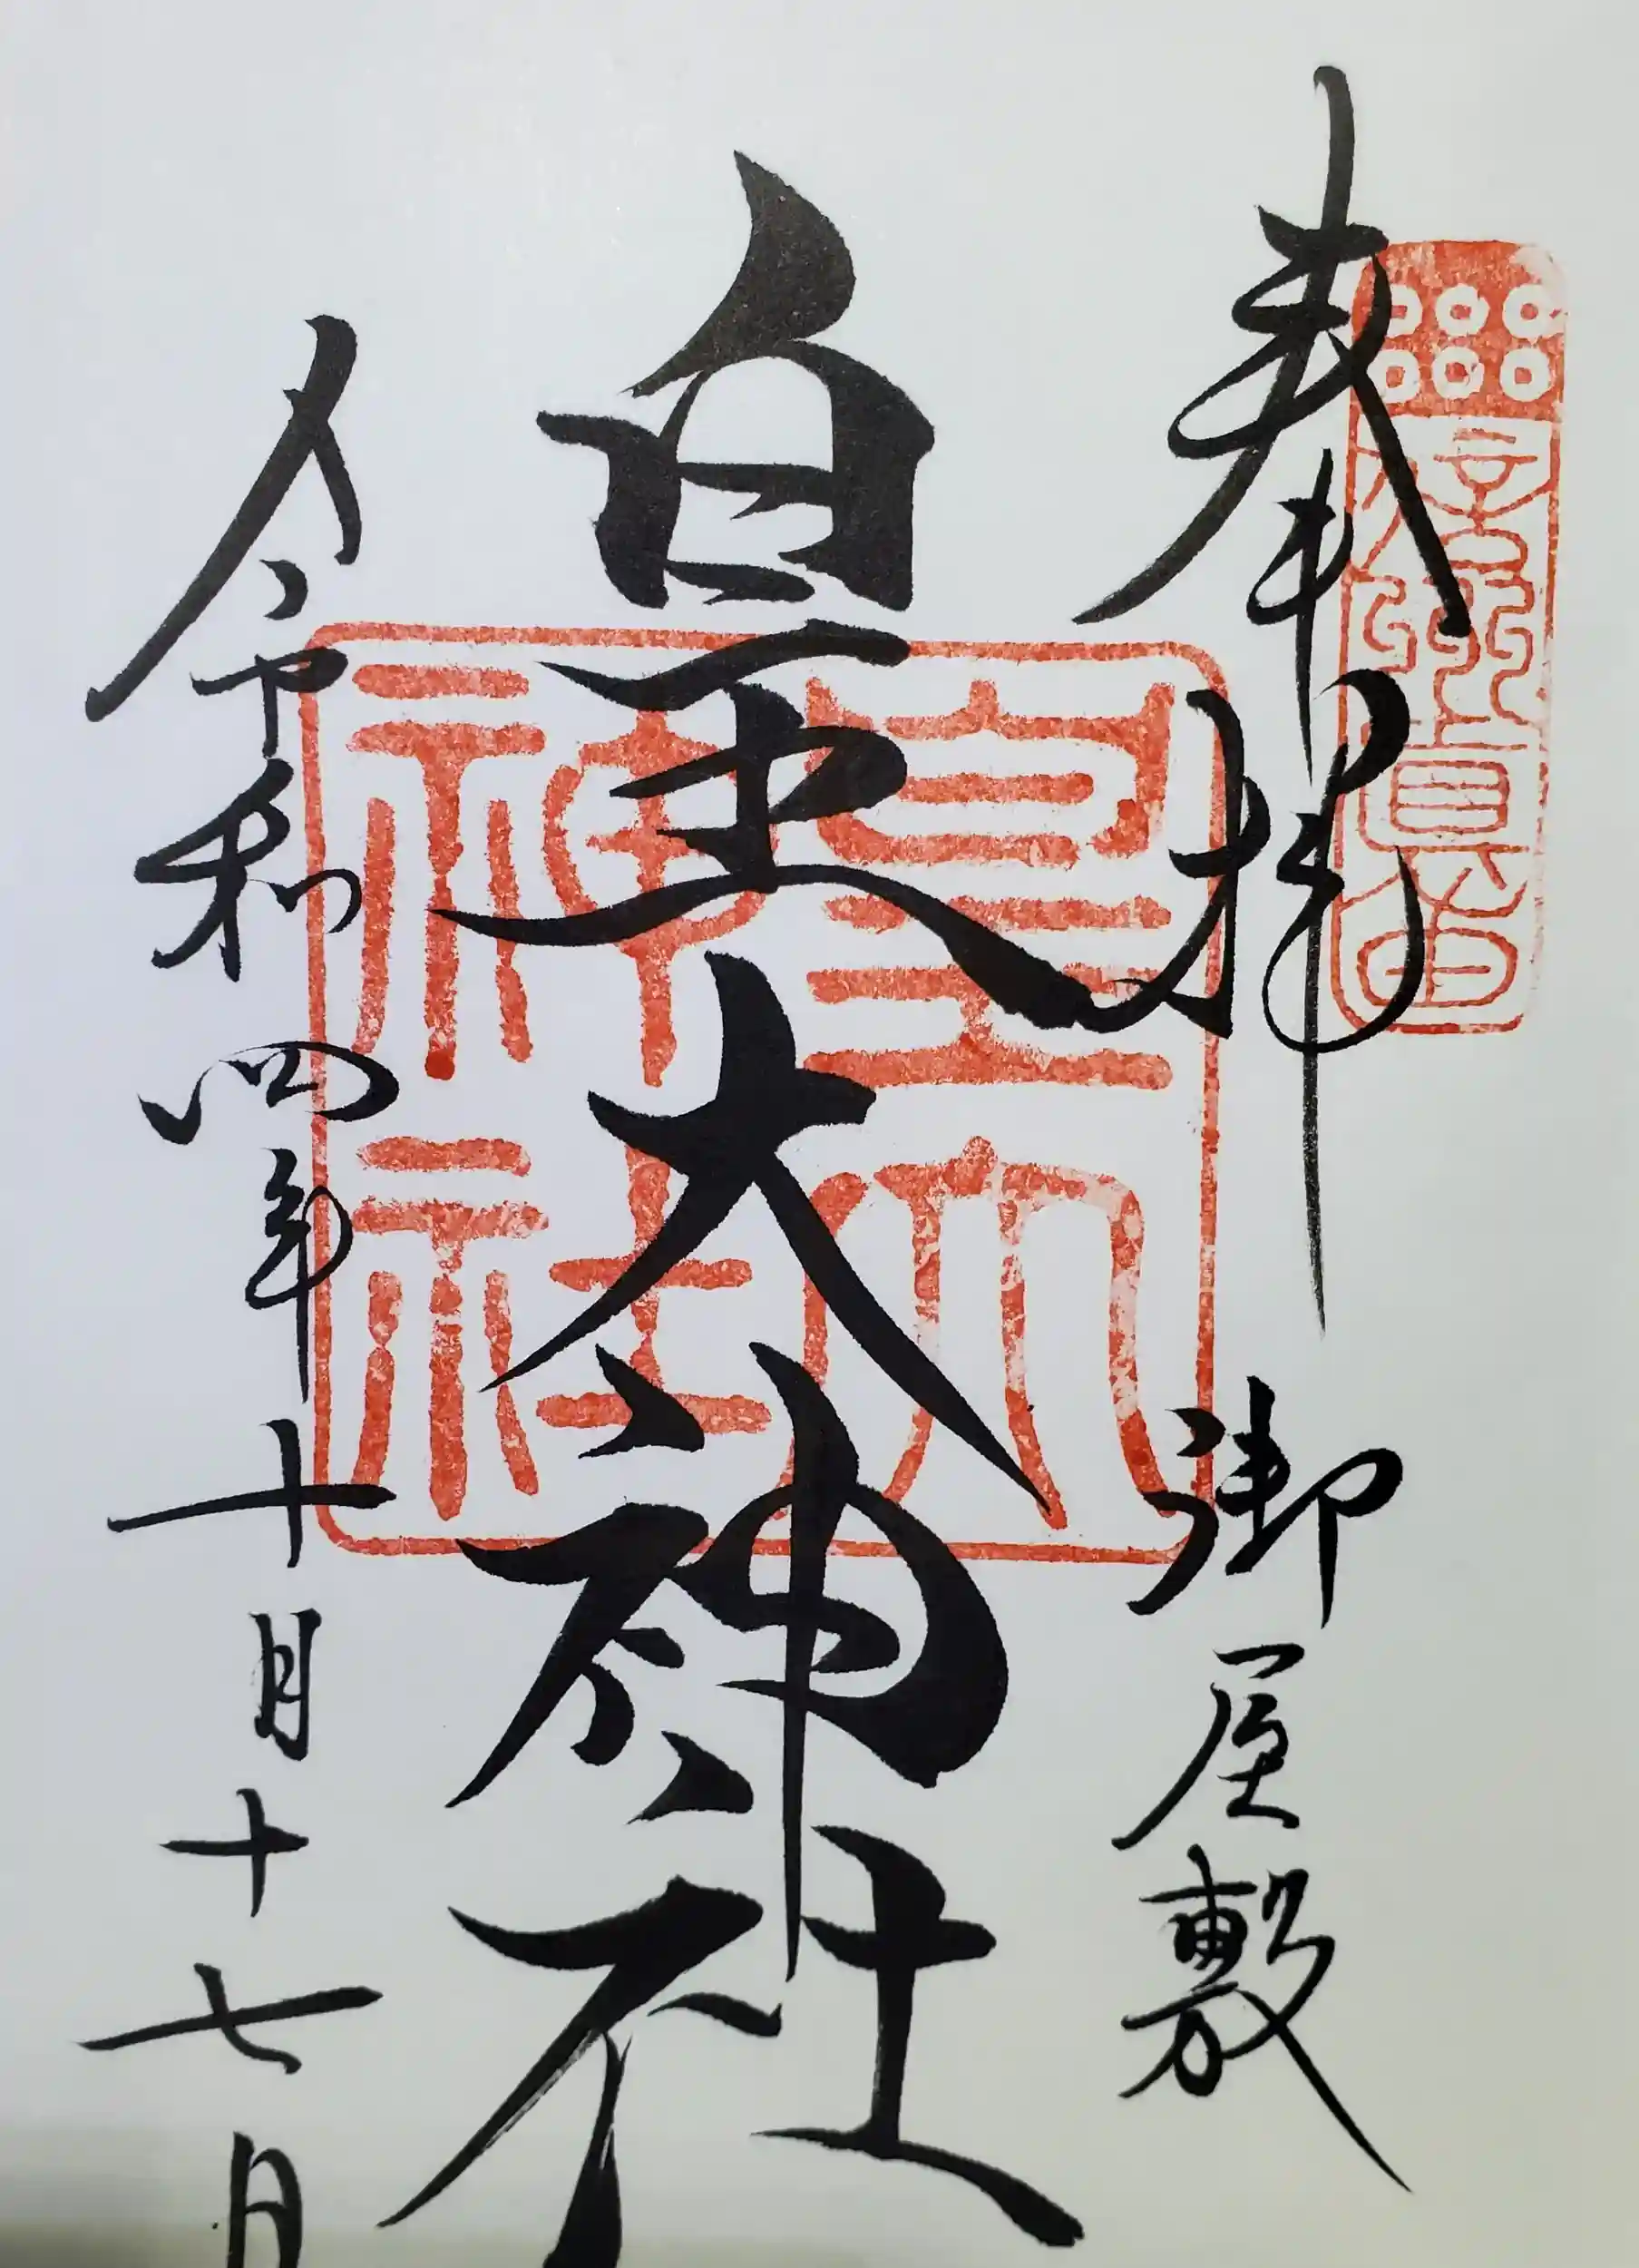 信州真田
奉拝 御屋敷
皇大神社
皇大神社
令和四年十月十七日